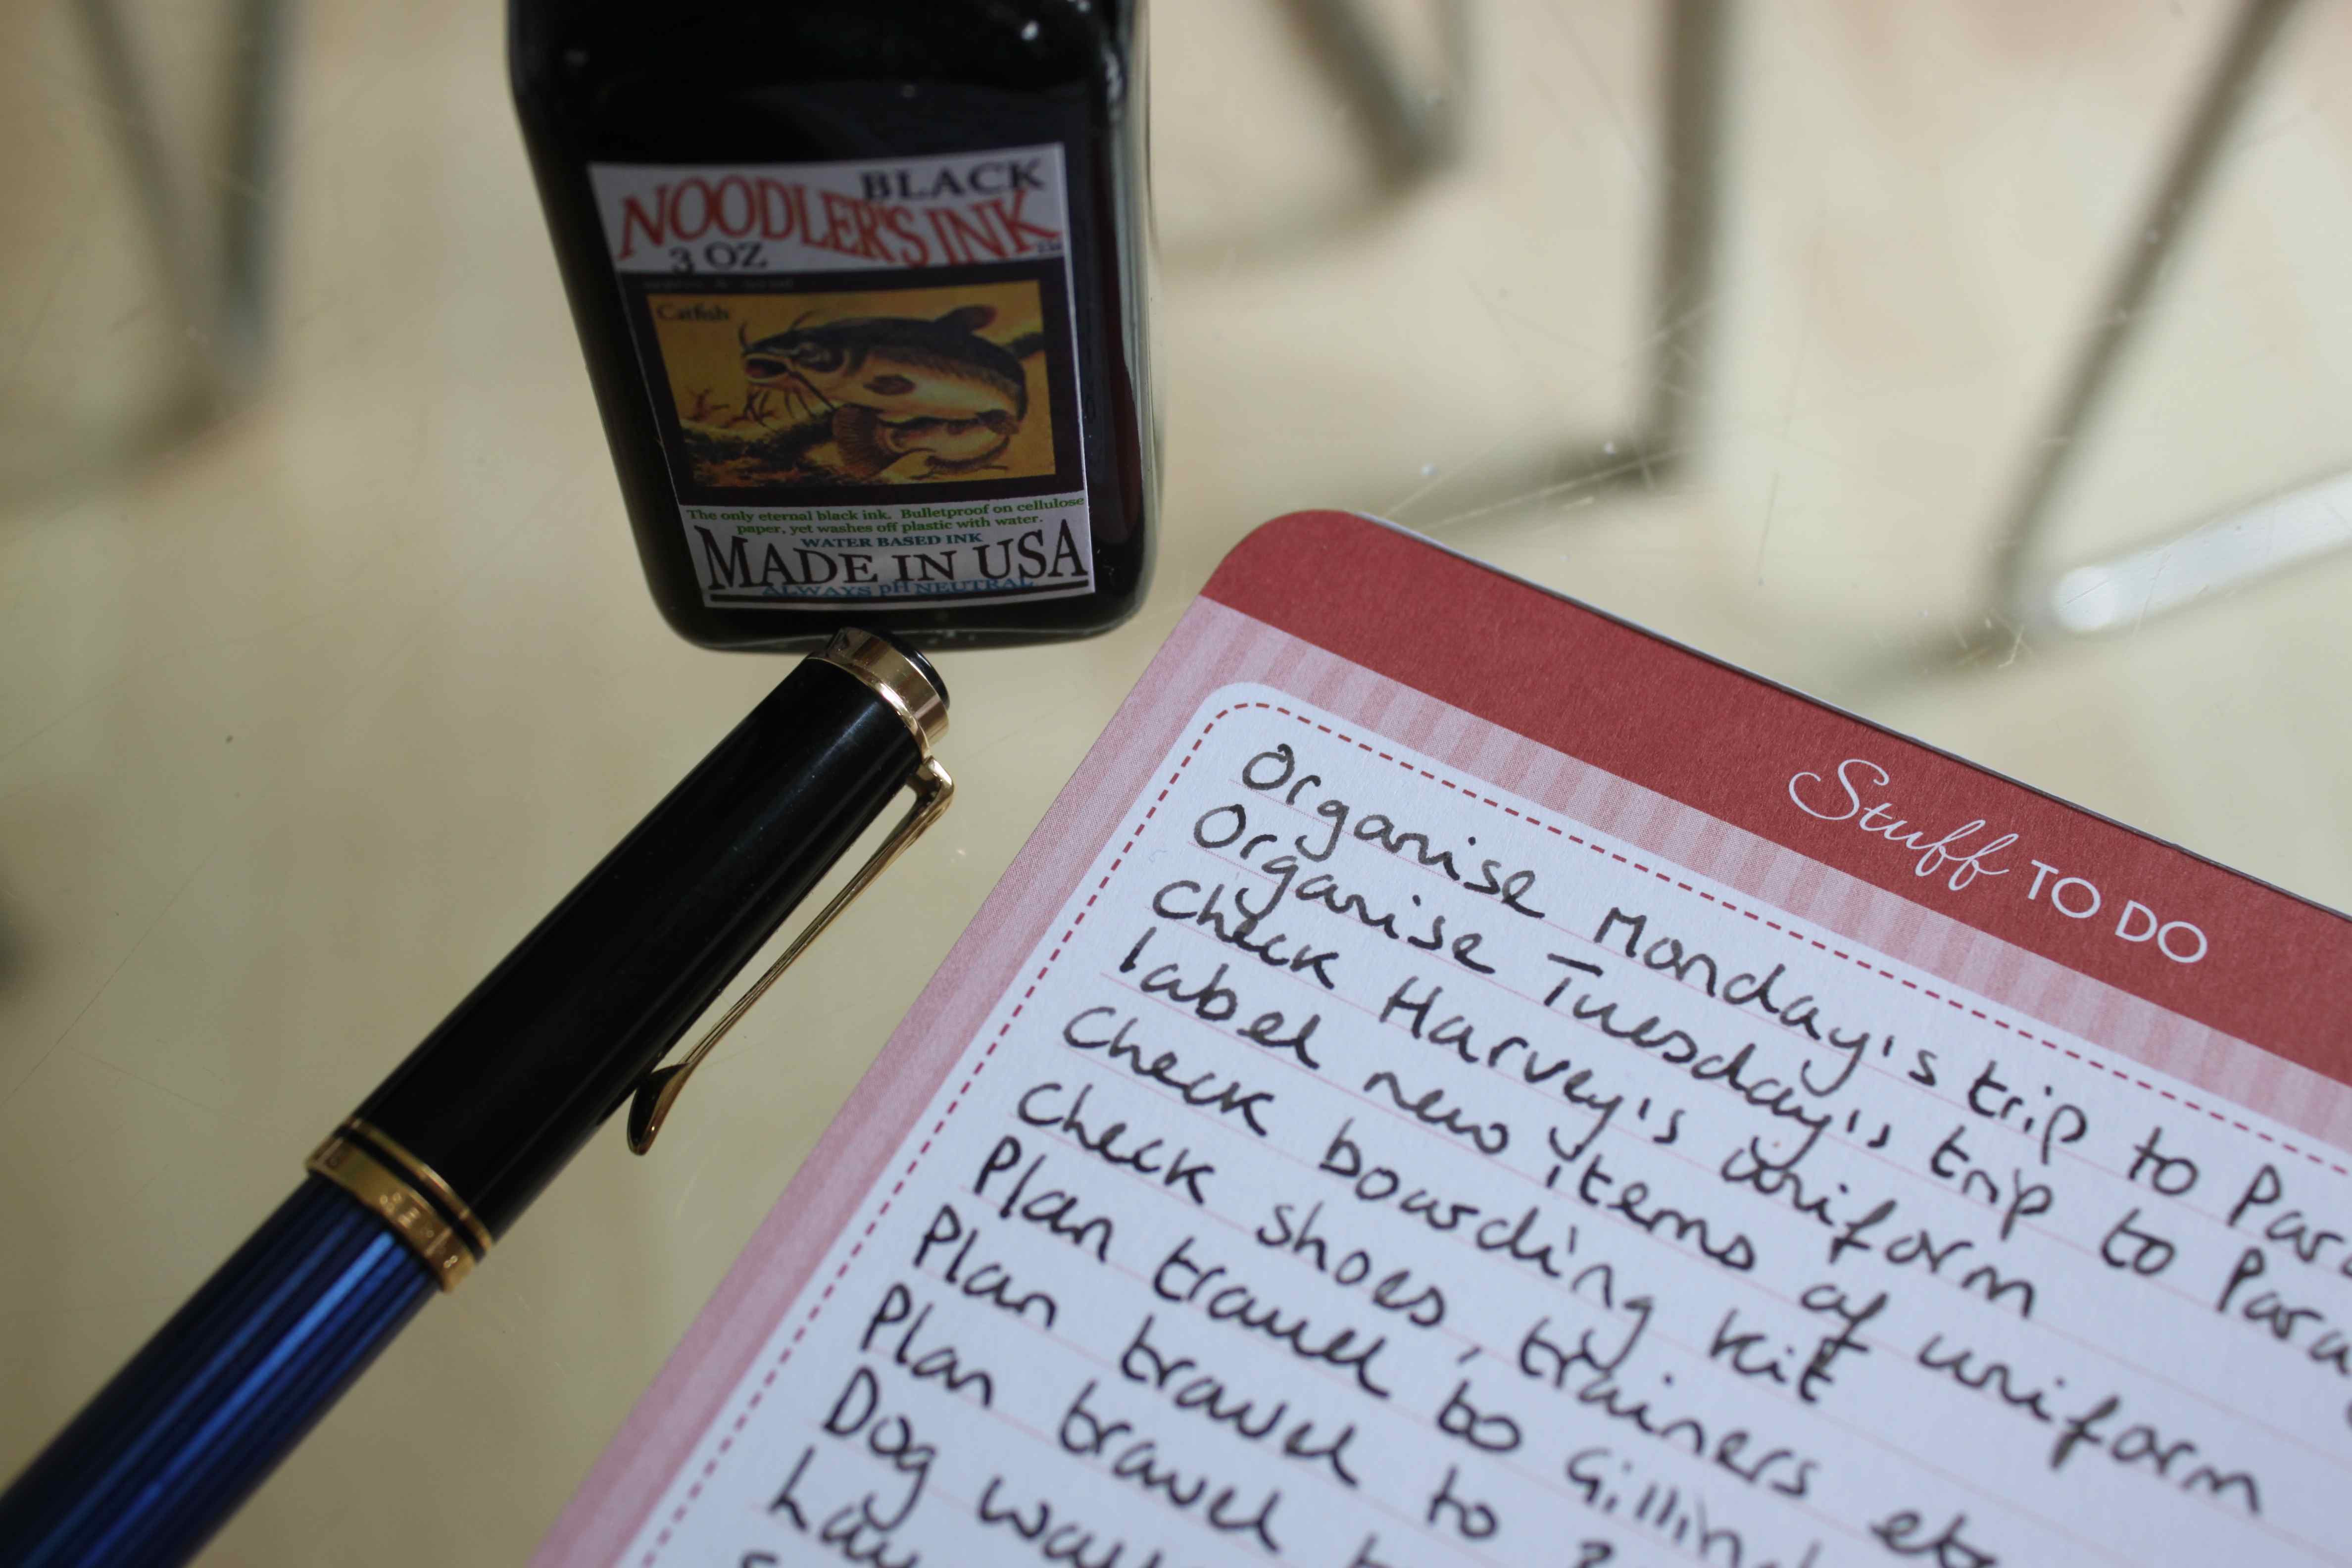 BLACK
NOODLER'S INK
3 OZ
Catfish
The only eternal black ink. Bulletproof on cellulose
paper, yet washes off plastic with water.
WATER BASED INK
MADE IN USA
ALWAYS pH NEUTRAL
Stuff TO DO
Organise Monday's trip to Para
Organise Tuesday's trip to Para
Check Harvey's uniform
label new items of uniform
Check boarding kit
Check shoes, trainers etc
Plan travel to Gilling
Plan travel to
Plan travel
Dog